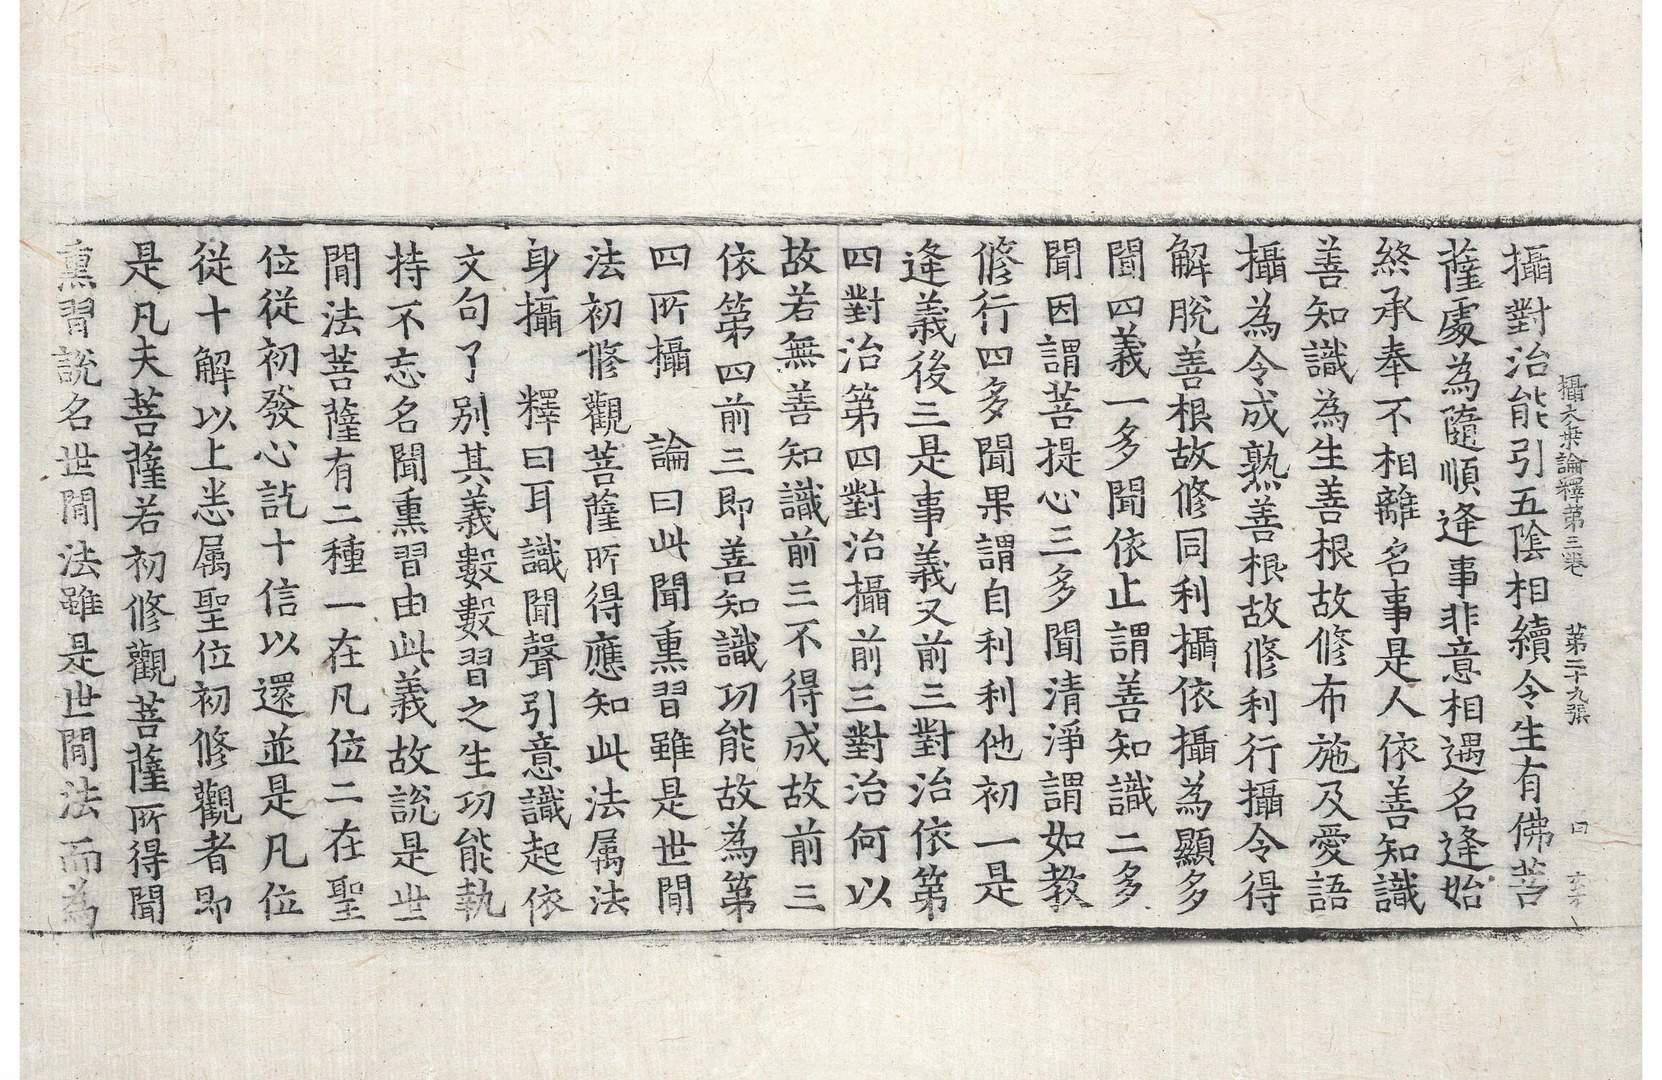 攝大乗論釋第三卷 第二十九張
攝對治能引五陰相續令生有佛菩
薩處為隨順逢事非意相遇名逢始
終承奉不相離名事是人依善知識
善知識為生善根故修布施及愛語
攝為令成熟善根故修利行攝令得
解脫善根故修同利攝依攝為顯多
聞四義一多聞依止謂善知識二多
聞因謂菩提心三多聞清淨謂如教
修行四多聞果謂自利利他初一是
逢義後三是事義又前三對治依第
四對治第四對治攝前三對治何以
故若無善知識前三不得成故前三
依第四前三即善知識功能故為第
四所攝 論曰此聞熏習雖是世間
法初修觀菩薩所得應知此法属法
身攝 釋曰耳識聞聲引意識起依
文句了別其義數數習之生功能執
持不忘名聞熏習由此義故說是世
間法菩薩有二種一在凡位二在聖
位從初發心訖十信以還並是凡位
從十解以上悉属聖位初修觀者即
是凡夫菩薩若初修觀菩薩所得聞
熏習說名世間法雖是世間法而為